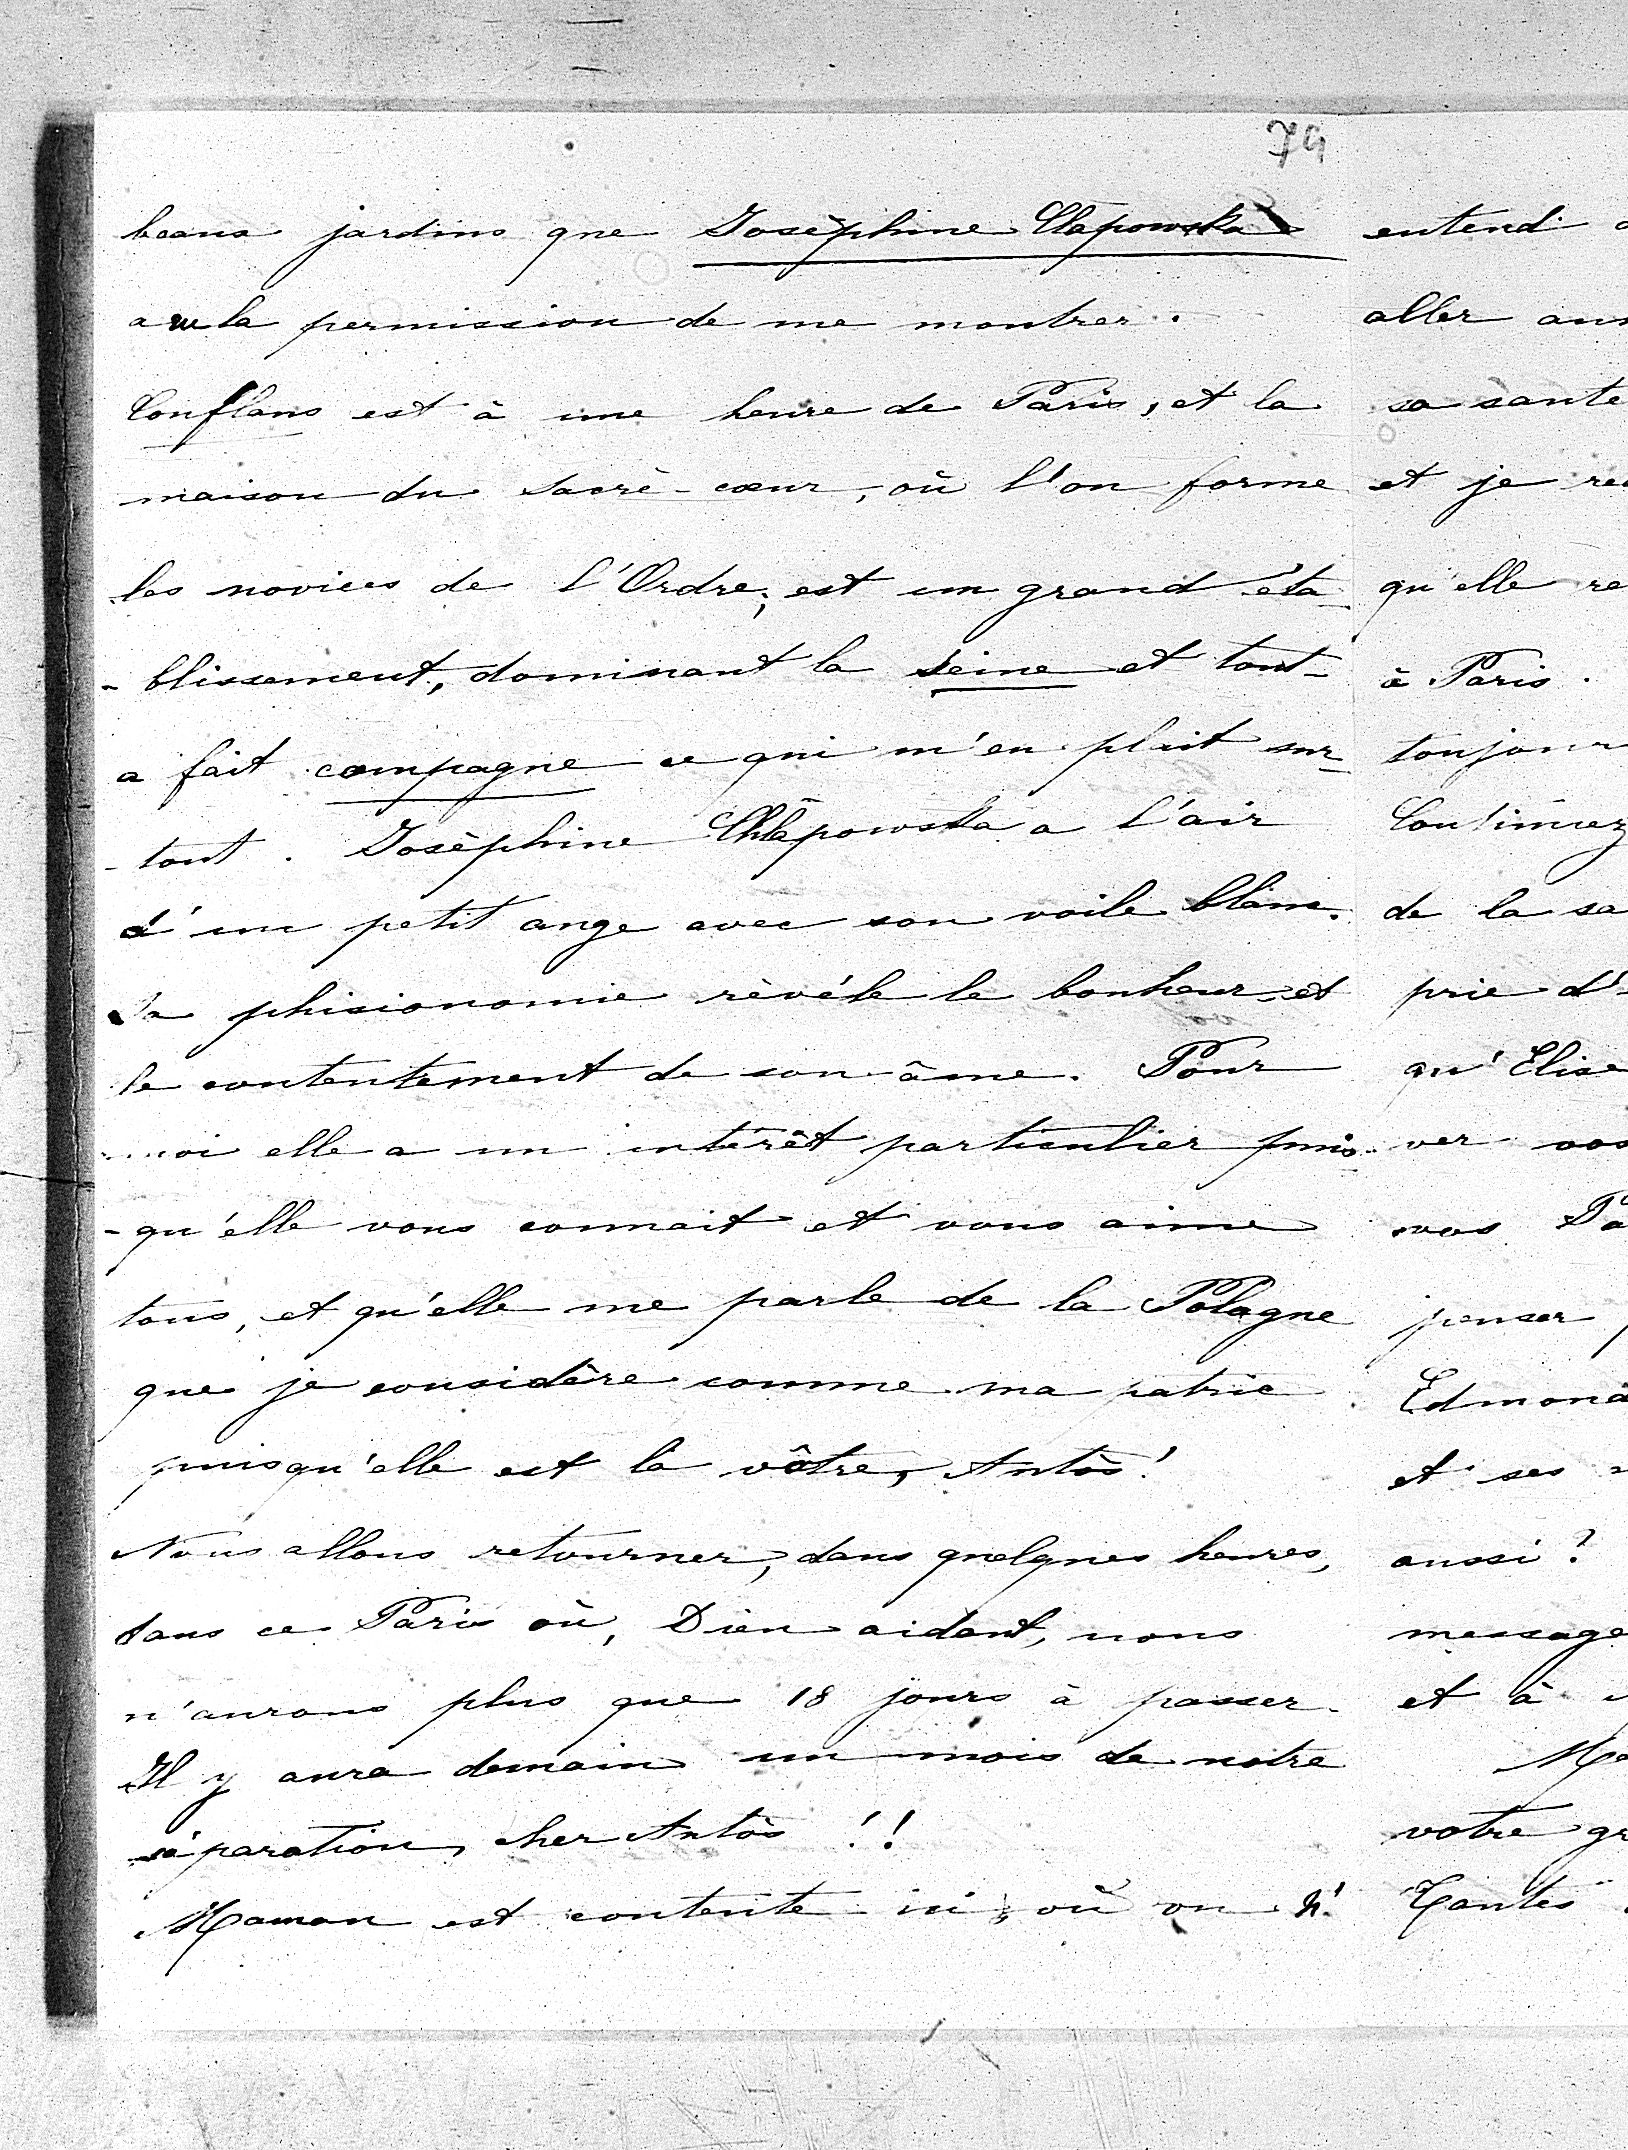 79
beaux jardins que Josèphine Chlapowska
a eu la permission de me montrer.
Conflans est à une heure de Paris, et la
maison du Sacrè-cœur, où l'on forme
les novices de l'Ordre, est un grand éta-
-blissement, dominant la Seine et tout-
a fait campagne ce qui m'en plait sur-
-tout. Josèphine Chlapowska a l'air
d'un petit ange avec son voile blanc.
Sa phisionomie rèvéle le bonheur et
le contentement de son âme. Pour
moi elle a un intérêt particulier puis-
-qu'elle vous connait et vous aime
tous, et qu'elle me parle de la Pologne
que je considère comme ma patrie
puisqu'elle est la vôtre, Antòs!
Nous allons retourner, dans quelques heures,
dans ce Paris où, Dieu aidant, nous
n'aurons plus que 18 jours à passer.
Il y aura demain un mois de notre
séparation, cher Antòs !!
Maman est contente ici, où on n'
entend
aller
sa santé
et je
qu'elle re
à Paris.
toujour
Continuez
de la sa
prie d'
qu'Elise
ver vos
vos Pa
penser
Edmond
et ses
aussi?
message
et à
Me
votre gr
Tantes